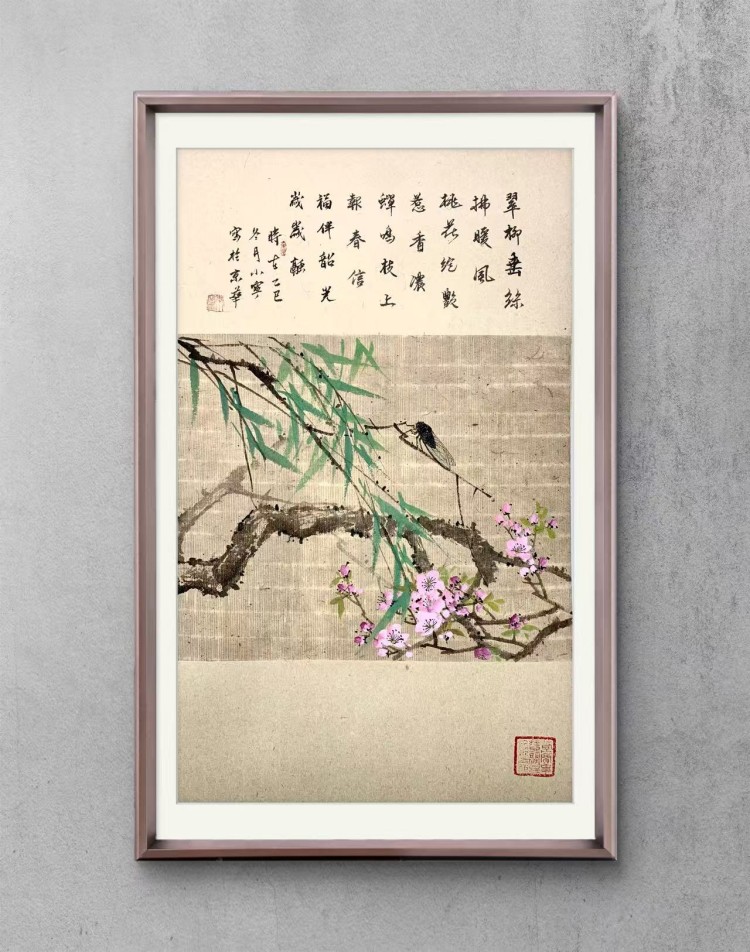 翠柳垂絲
拂暖風
桃花綻艷
惹香濃
蟬鳴枝上
報春信
福伴韶光
歲歲融
時在乙巳
冬月小寧
寫於京華